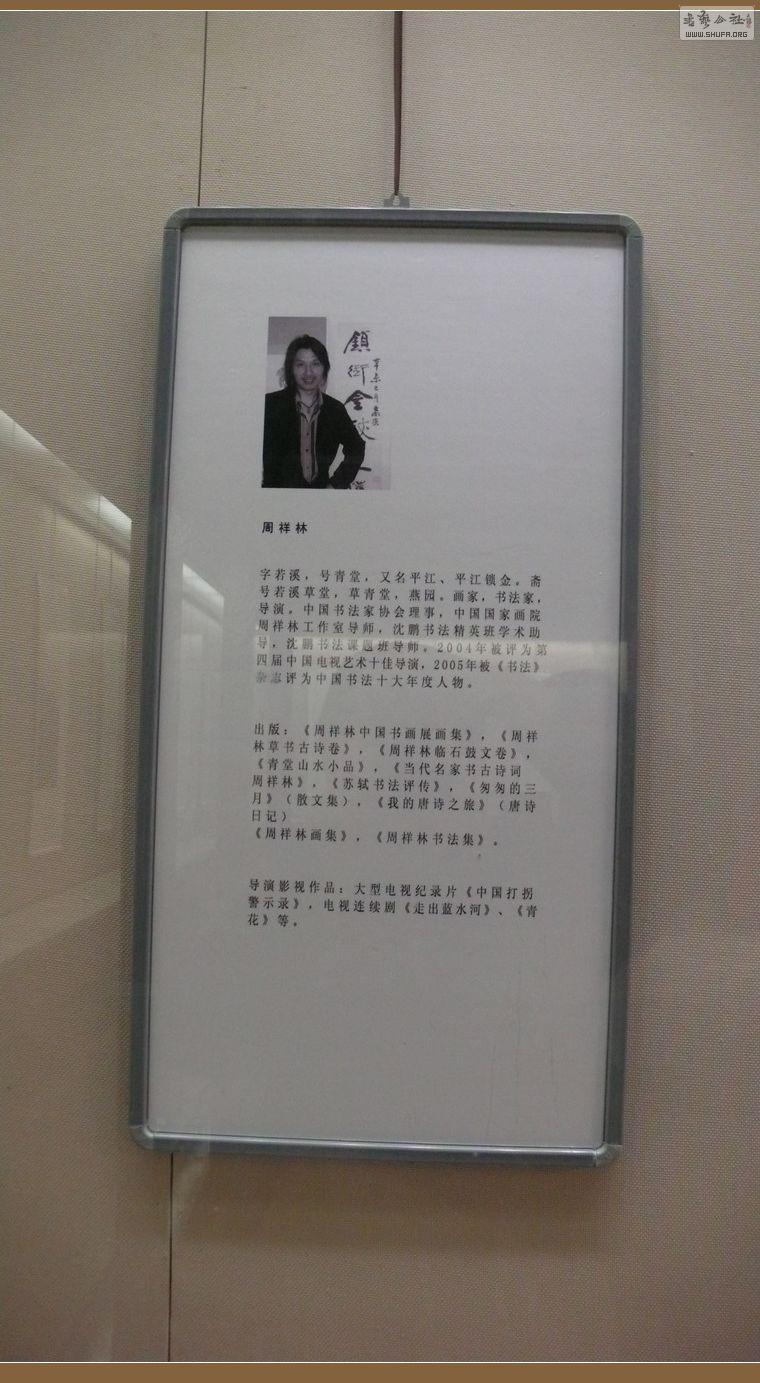 WWW.SHUFA.ORG
鎖
周祥林
字若溪，号青堂，又名平江、平江锁金。斋
号若溪草堂，草青堂，燕园。画家，书法家，
导演。中国书法家协会理事，中国国家画院
周祥林工作室导师，沈鹏书法精英班学术助
导，沈鹏书法课题班导师。2004年被评为第
四届中国电视艺术十佳导演，2005年被《书法》
杂志评为中国书法十大年度人物。
出版：《周祥林中国书画展画集》，《周祥
林草书古诗卷》，《周祥林临石鼓文卷》，
《青堂山水小品》，《当代名家书古诗词
周祥林》，《苏轼书法评传》，《匆匆的三
月》（散文集），《我的唐诗之旅》（唐诗
日记）
《周祥林画集》，《周祥林书法集》。
导演影视作品：大型电视纪录片《中国打拐
警示录》，电视连续剧《走出蓝水河》、《青
花》等。